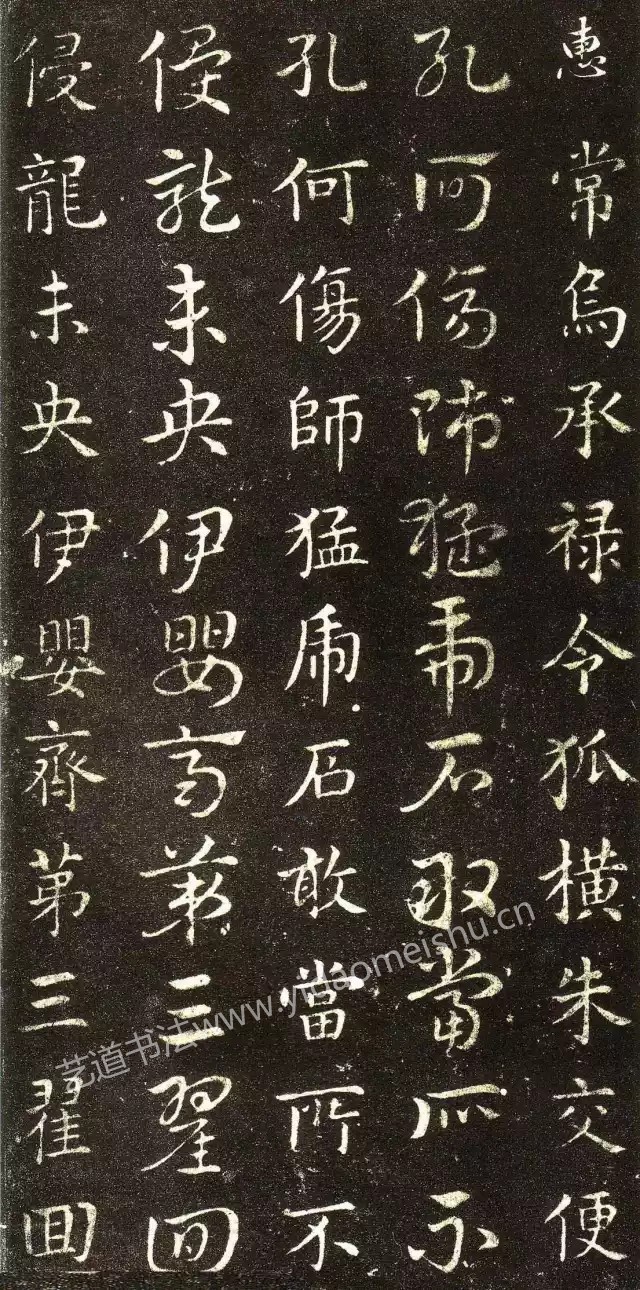 惠常烏承禄令狐橫朱交便
孔何傷師猛虎石敢當所不
孔何傷師猛虎石敢當所不
侵龍未央伊嬰齊第三翟回
侵龍未央伊嬰齊第三翟回
艺道书法www.yidaomeishu.cn